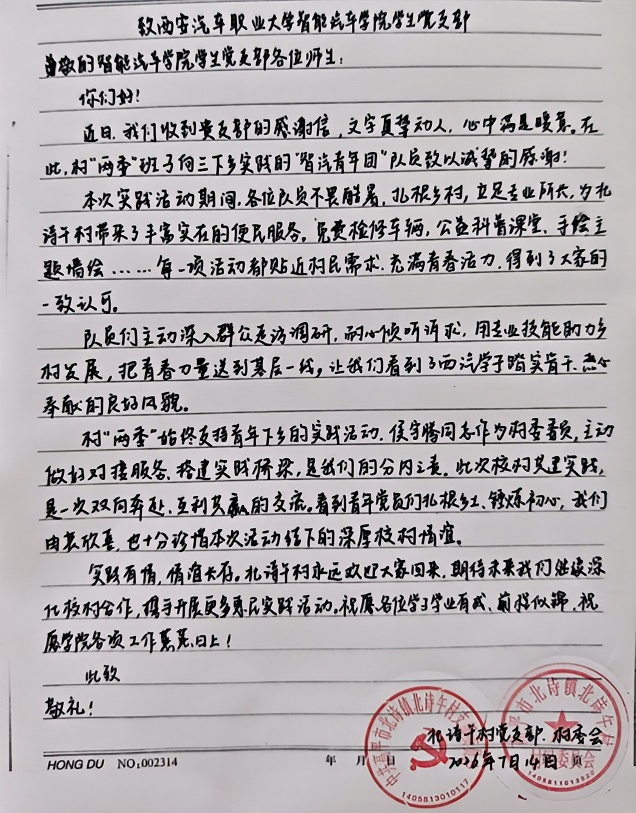 致西安汽车职业大学智能汽车学院学生党支部
尊敬的智能汽车学院学生党支部各位师生：
你们好！
近日，我们收到贵支部的感谢信，文字真挚动人，心中满是暖意。在
此，村“两委”班子向三下乡实践的“智汽青年团”队员致以诚挚的感谢！
本次实践活动期间，各位队员不畏酷暑，扎根乡村，立足专业所长，为北
诗午村带来了丰富实在的便民服务。免费检修车辆，公益科普课堂、手绘主
题墙绘……每一项活动都贴近村民需求，充满青春活力，得到了大家的
一致认可。
队员们主动深入群众走访调研，耐心倾听诉求，用专业技能助力乡
村发展，把青春力量送到基层一线，让我们看到了西汽学子踏实肯干、热心
奉献的良好风貌。
村“两委”始终支持青年下乡的实践活动，侯守腾同志作为村委委员，主动
做好对接服务、搭建实践桥梁，是我们的分内之责。此次校村共建实践，
是一次双向奔赴、互利共赢的交流。看到青年党员们扎根乡土、锤炼初心，我们
由衷欣喜，也十分珍惜本次活动结下的深厚校村情谊。
实践有情，情谊长存。北诗午村永远欢迎大家回来，期待未来我们继续深
化校村合作，携手开展更多惠民实践活动。祝愿各位学子学业有成、前程似锦，祝
愿学院各项工作蒸蒸日上！
此致
敬礼！
北诗午村党支部、村委会
2026年7月14日
HONG DU NO:002314 年 月 日 页
中共高平市北诗镇北诗午村支
1405813010117
平市北诗镇北诗午村
村民委员会